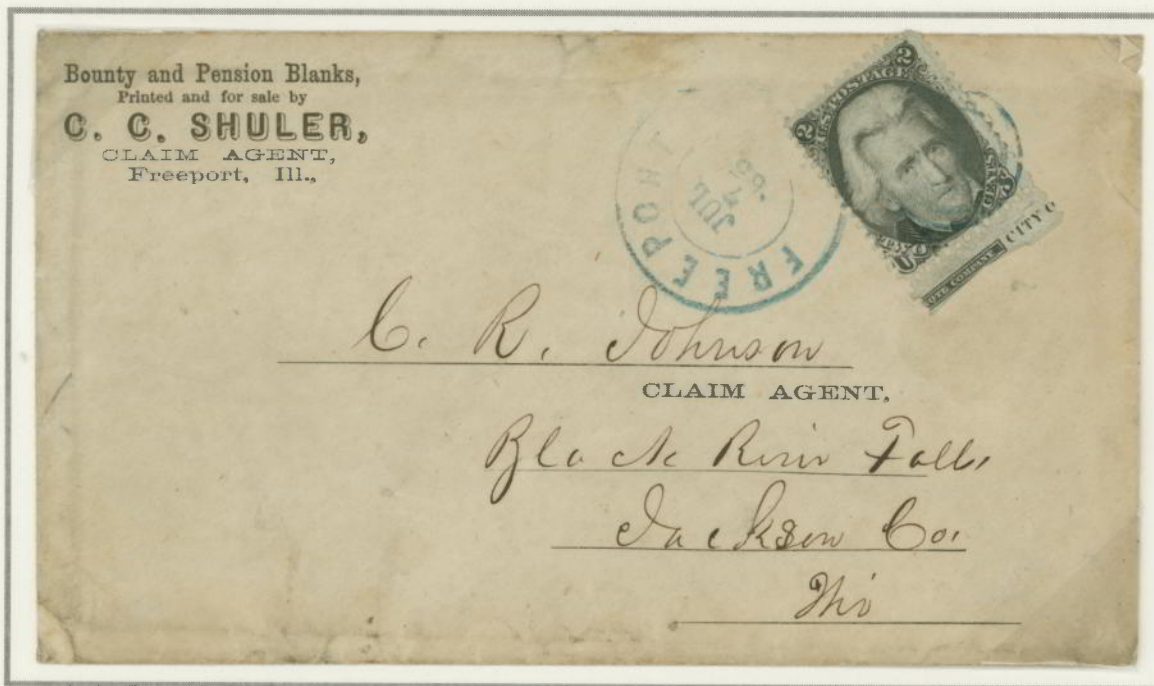 Bounty and Pension Blanks,
Printed and for sale by
C. C. SHULER,
CLAIM AGENT,
Freeport, Ill.,
FREEPORT
JUL
7
2
2
U.S. POSTAGE
CENTS
U
OTE COMPANY.
CITY O
C. R. Johnson
CLAIM AGENT,
Black River Falls
Jackson Co.
Wis